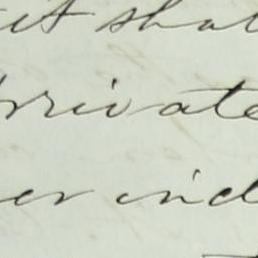 it shal
private
er ind